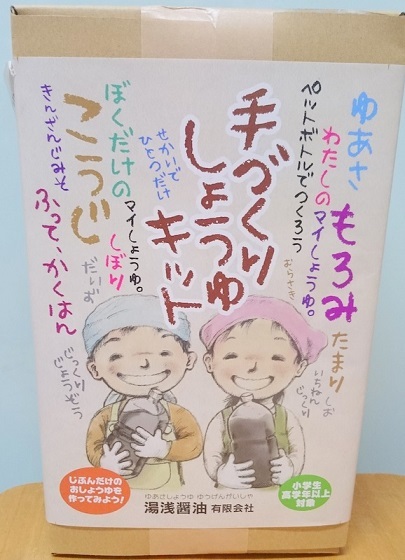 ゆあさ
わたしの
マイしょうゆ。
ペットボトルでつくろう
もろみ
むらさき
たまり
しお
いちねん
じっくり
手づくり
しょうゆ
キット
せかいで
ひとつだけ
ぼくだけの
マイしょうゆ。
こうじ
しぼり
だいず
きんざんじみそ
ふって、かくはん
じっくり
じょうぞう
じぶんだけの
おしょうゆを
作ってみよう!
小学生
高学年以上
対象
ゆあさしょうゆ ゆうげんがいしゃ
湯浅醤油 有限会社